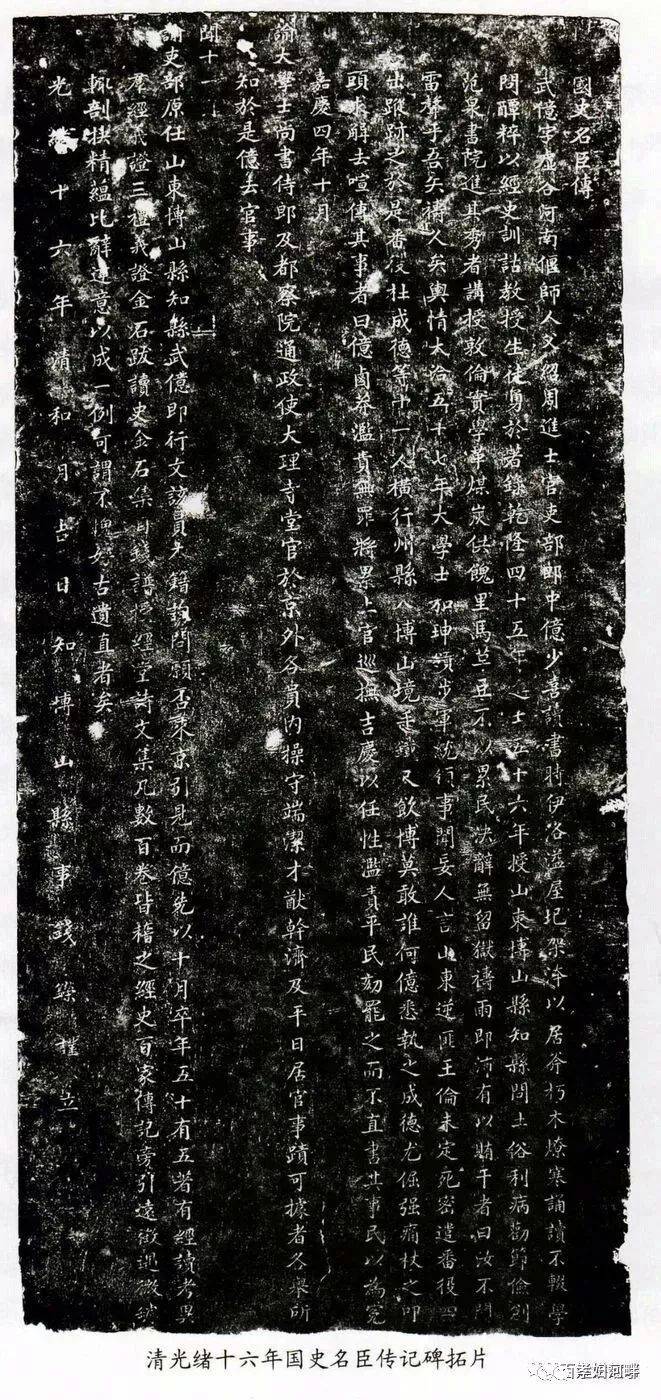 國史名臣傳
武億字虛谷河南偃師人父紹周進士官吏部郎中億少喜讀書時伊洛溢屋圮架木以居斧朽木燎寒誦讀不輟學
問醇粹以經史訓詁教授生徒勇於著錄乾隆四十五年進士五十六年授山東博山縣知縣問土俗利病勸節儉創
范泉書院進其秀者講授敦倫實學革煤炭供餽里馬草豆不以累民決辭無留獄禱雨即沛有以賄干者曰汝不聞
雷聲乎吾矢禱久矣輿情大洽五十七年大學士和珅領步軍統領事聞妄人言山東逆匪王倫未定死密遣番役四
出蹤跡之於是番役杜成德等十一人橫行州縣入博山境尺飲博莫敢誰何億悉執之成德尤倔强痛杖之叩
頭求解去喧傳其事者曰億鹵莽濫責無罪將累上官巡撫吉慶以任性濫責平民劾罷之而不直書其事民以為冤
嘉慶四年十月
諭大學士尚書侍郎及都察院通政使大理寺堂官於京外各員內操守端潔才猷幹濟及平日居官事蹟可據者各舉所
知於是億去官事
聞十一
諭吏部原任山東博山縣知縣武億即行文該員原籍詢問願否來京引見而億先以十月卒年五十有五著有經讀考異
羣經義證三禮義證金石跋讀史金石集目錢譜授經堂詩文集凡數百卷皆稽之經史百家傳記旁引遠徵遇微罅
輒剖抉精蘊比辭達意以成一例可謂不愧好古遺直者矣
光緒十六年清和月吉日知博山縣事錢鑅謹立
清光绪十六年国史名臣传记碑拓片